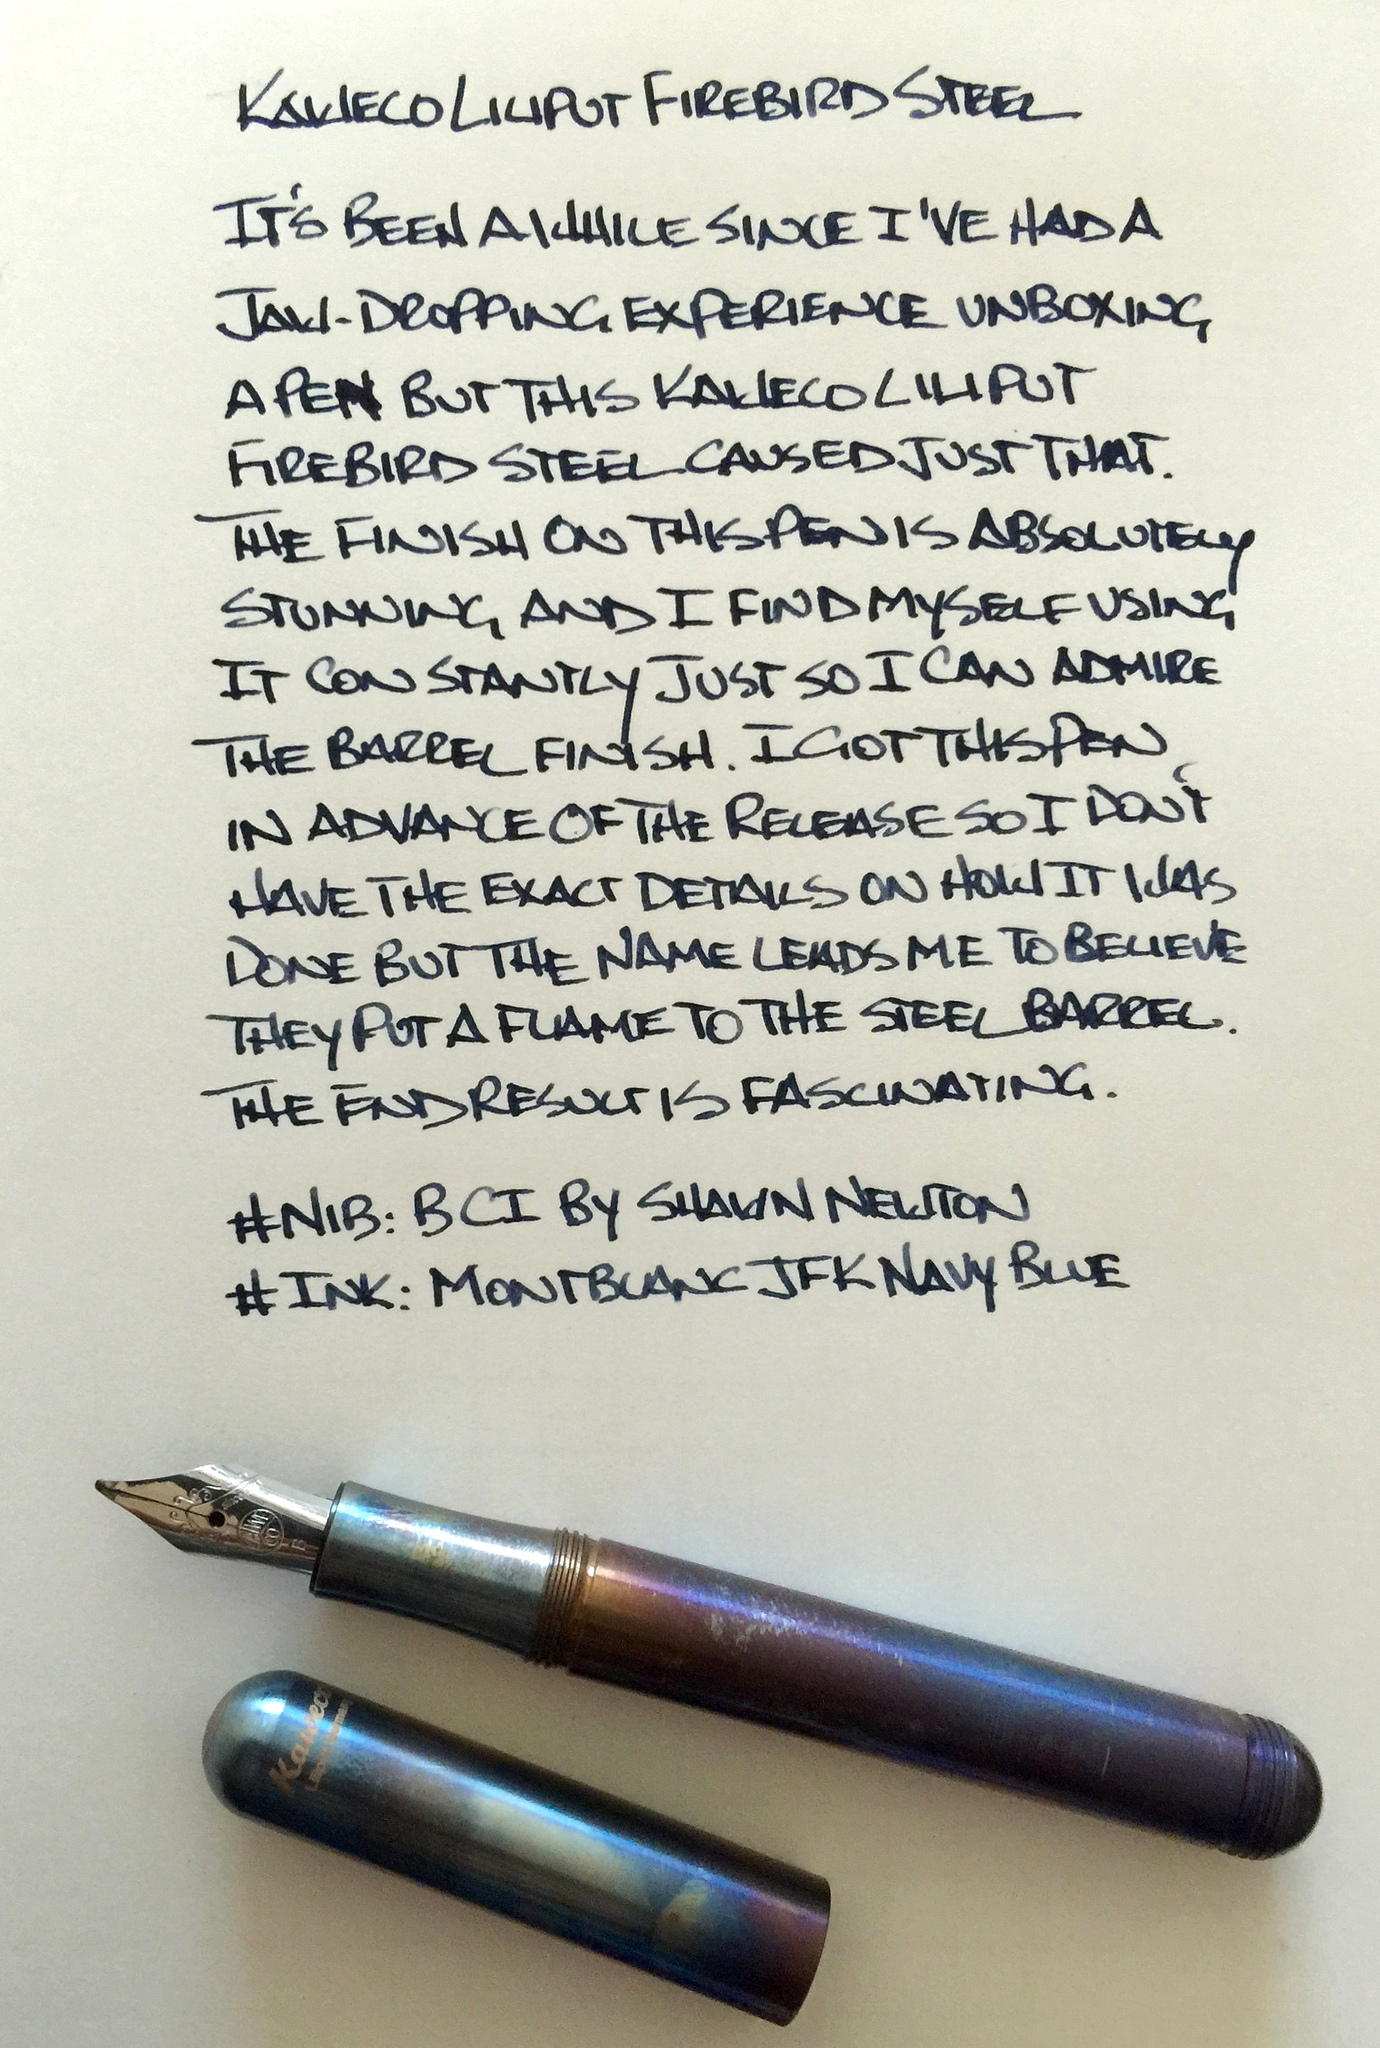 KAWECO LILIPUT FIREBIRD STEEL
IT'S BEEN AWHILE SINCE I'VE HAD A
JAW-DROPPING EXPERIENCE UNBOXING
A PEN BUT THIS KAWECO LILIPUT
FIREBIRD STEEL CAUSED JUST THAT.
THE FINISH ON THIS PEN IS ABSOLUTELY
STUNNING AND I FIND MYSELF USING
IT CONSTANTLY JUST SO I CAN ADMIRE
THE BARREL FINISH. I GOT THIS PEN
IN ADVANCE OF THE RELEASE SO I DON'T
HAVE THE EXACT DETAILS ON HOW IT WAS
DONE BUT THE NAME LEADS ME TO BELIEVE
THEY PUT A FLAME TO THE STEEL BARREL.
THE END RESULT IS FASCINATING.
#NIB: B CI BY SHAWN NEWTON
#INK: MONTBLANC JFK NAVY BLUE
Kaweco